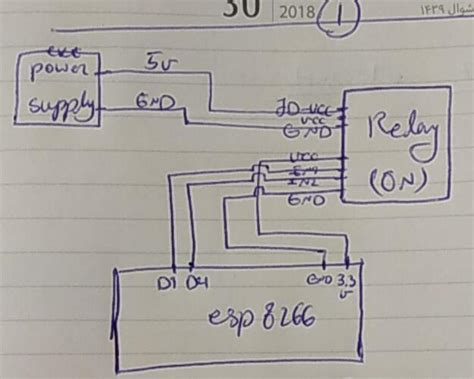 30 2018 1 شوال ١٤٣٩
power
supply
5v
GND
JD-VCC
VCC
GND
Relay
(ON)
VCC
IN1
IN2
GND
D1 D4 GND 3.3
v
esp 8266